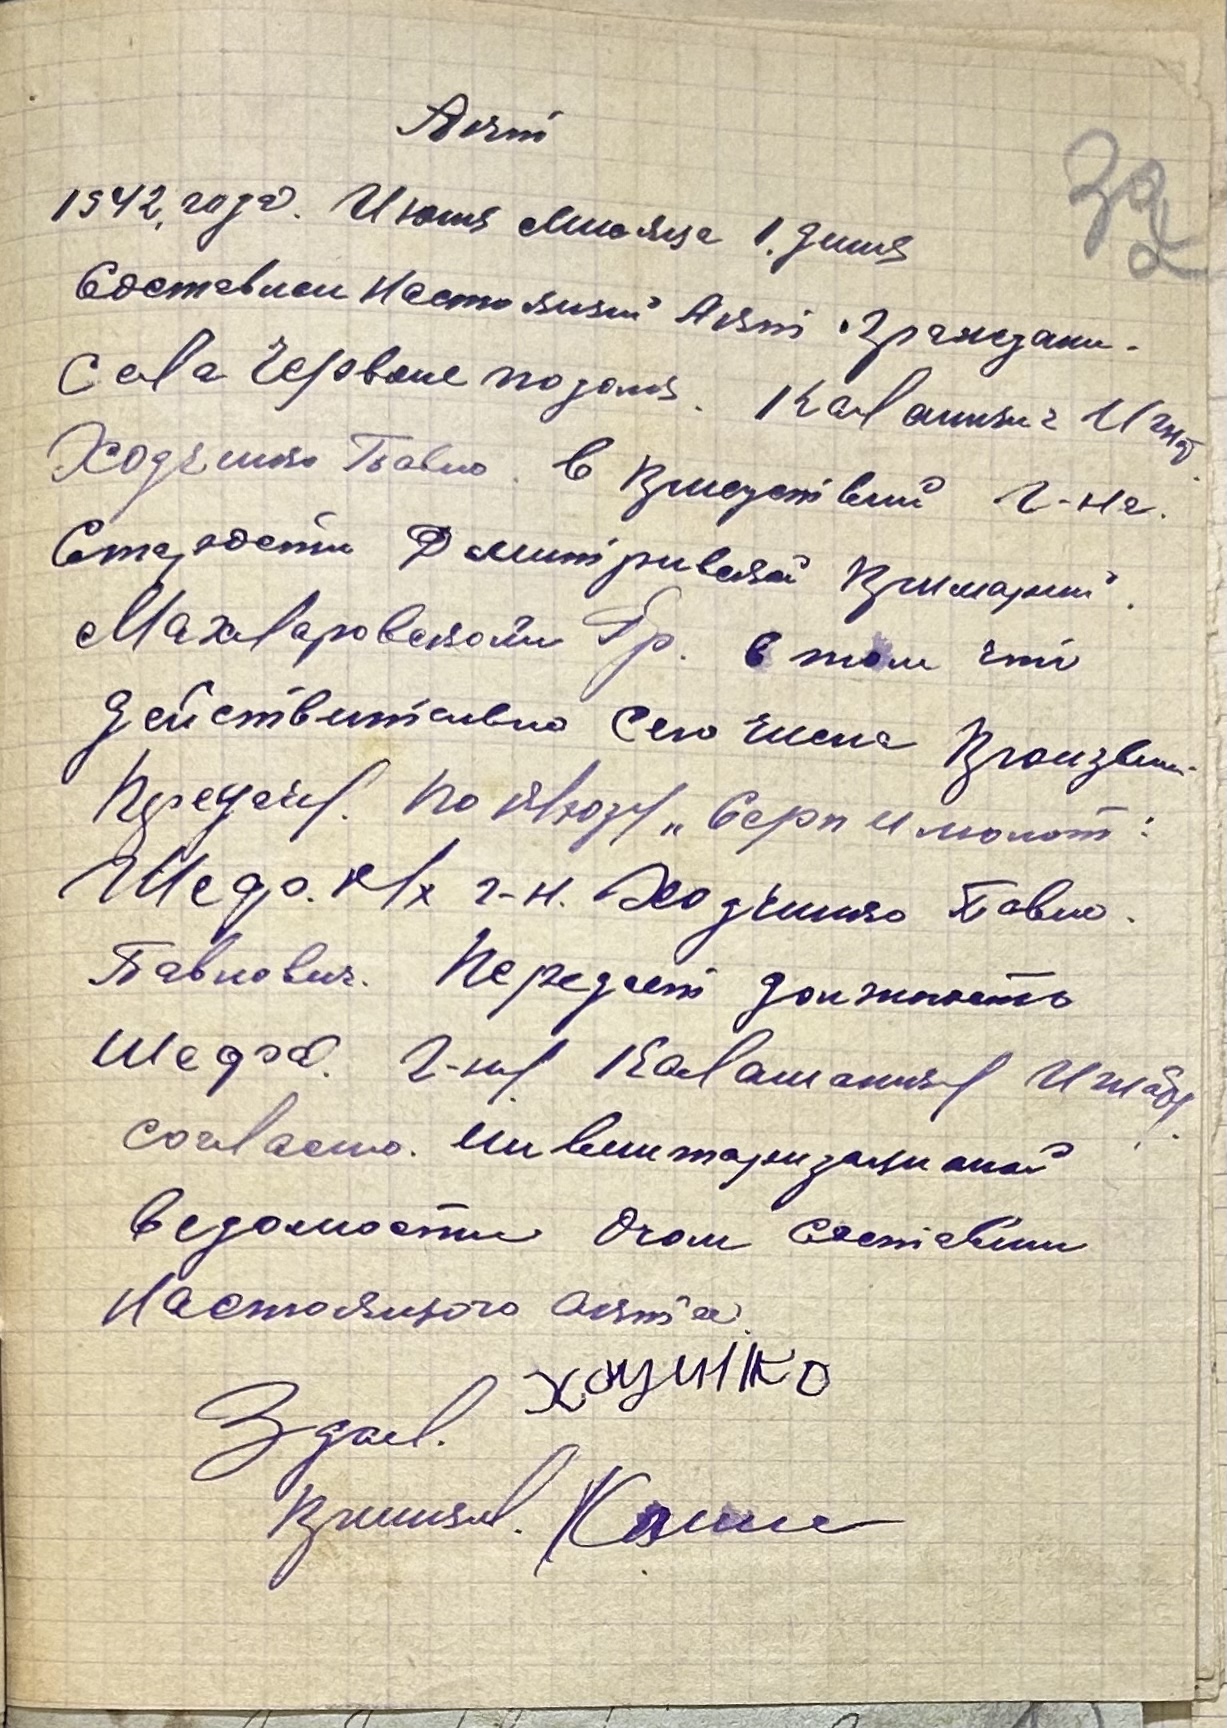 Актъ
32
1942, года. Июня месяца 1. дння
Составлен Настоящий Актъ Граждани.
Села Червоне подоля. Калашник Игнат
Ходченко Павло. в присудствий г-на.
Старости Дмитриевской примарий.
Махаровском Гр. в том что
действительно Сего числа Произвели
Предачу. По к/хозу „Серп и молот":
Шефо. к/х г-н. Ходченко Павло.
Павлович. Передает должность
шефа. г-ну Калашнику
согласно. инвентаризационой
ведомости Очом составлин
Настоящого актъа.
Здал. ходчнко
принял.